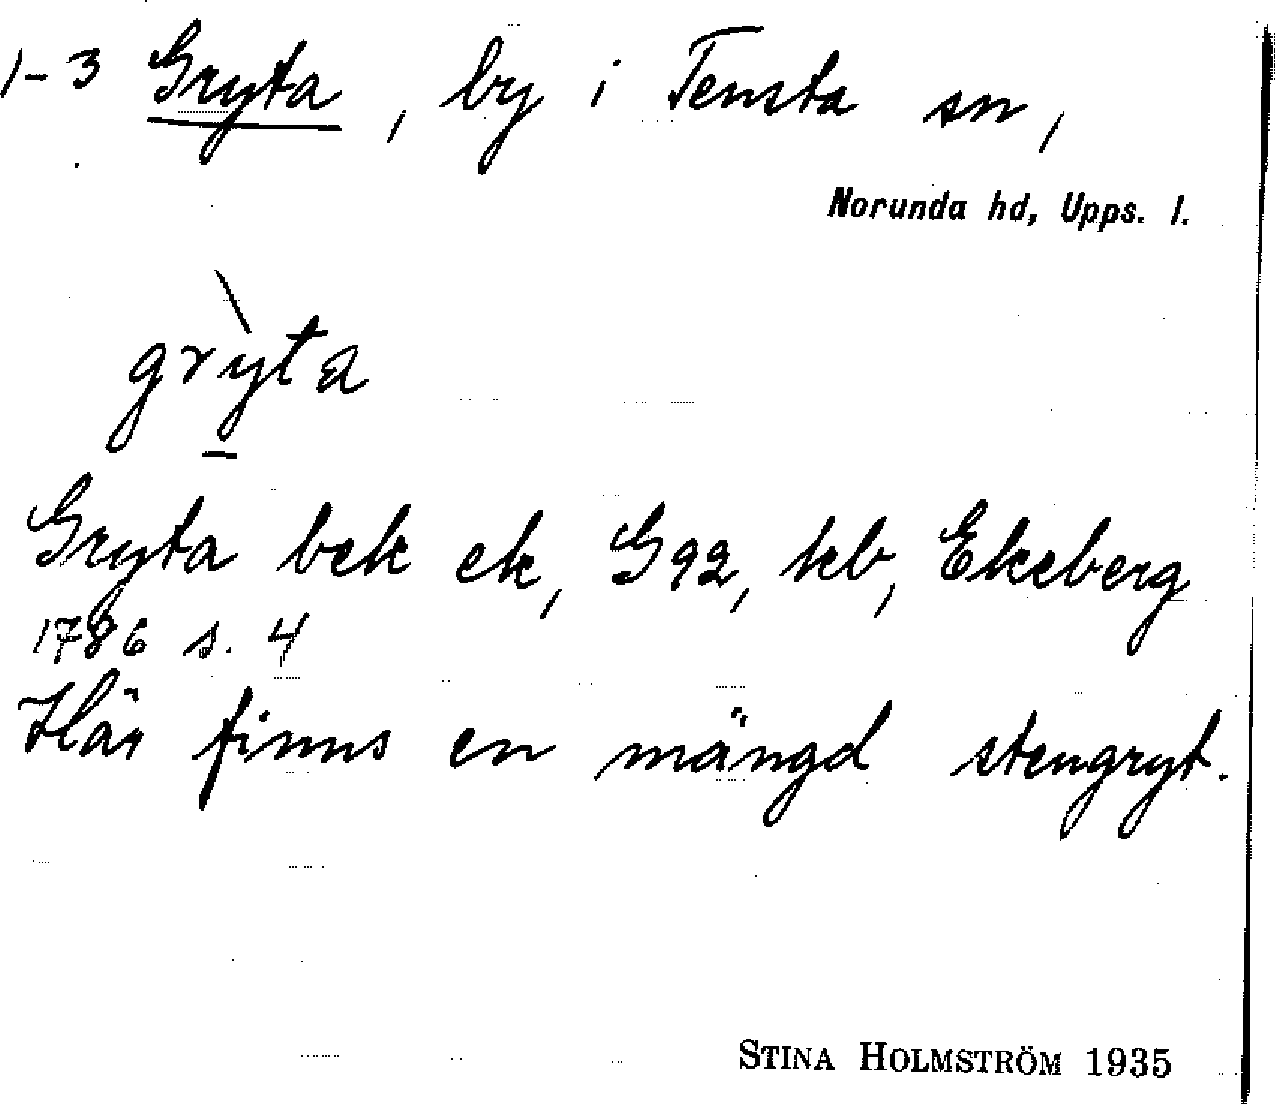 1-3 Gryta, by i Tensta sn,
Norunda hd, Upps. l.
grỳ̲ta
Gryta bek ek, G92, kb, Ekeberg
1786 s. 4
Här finns en mängd stengryt.
STINA HOLMSTRÖM 1935